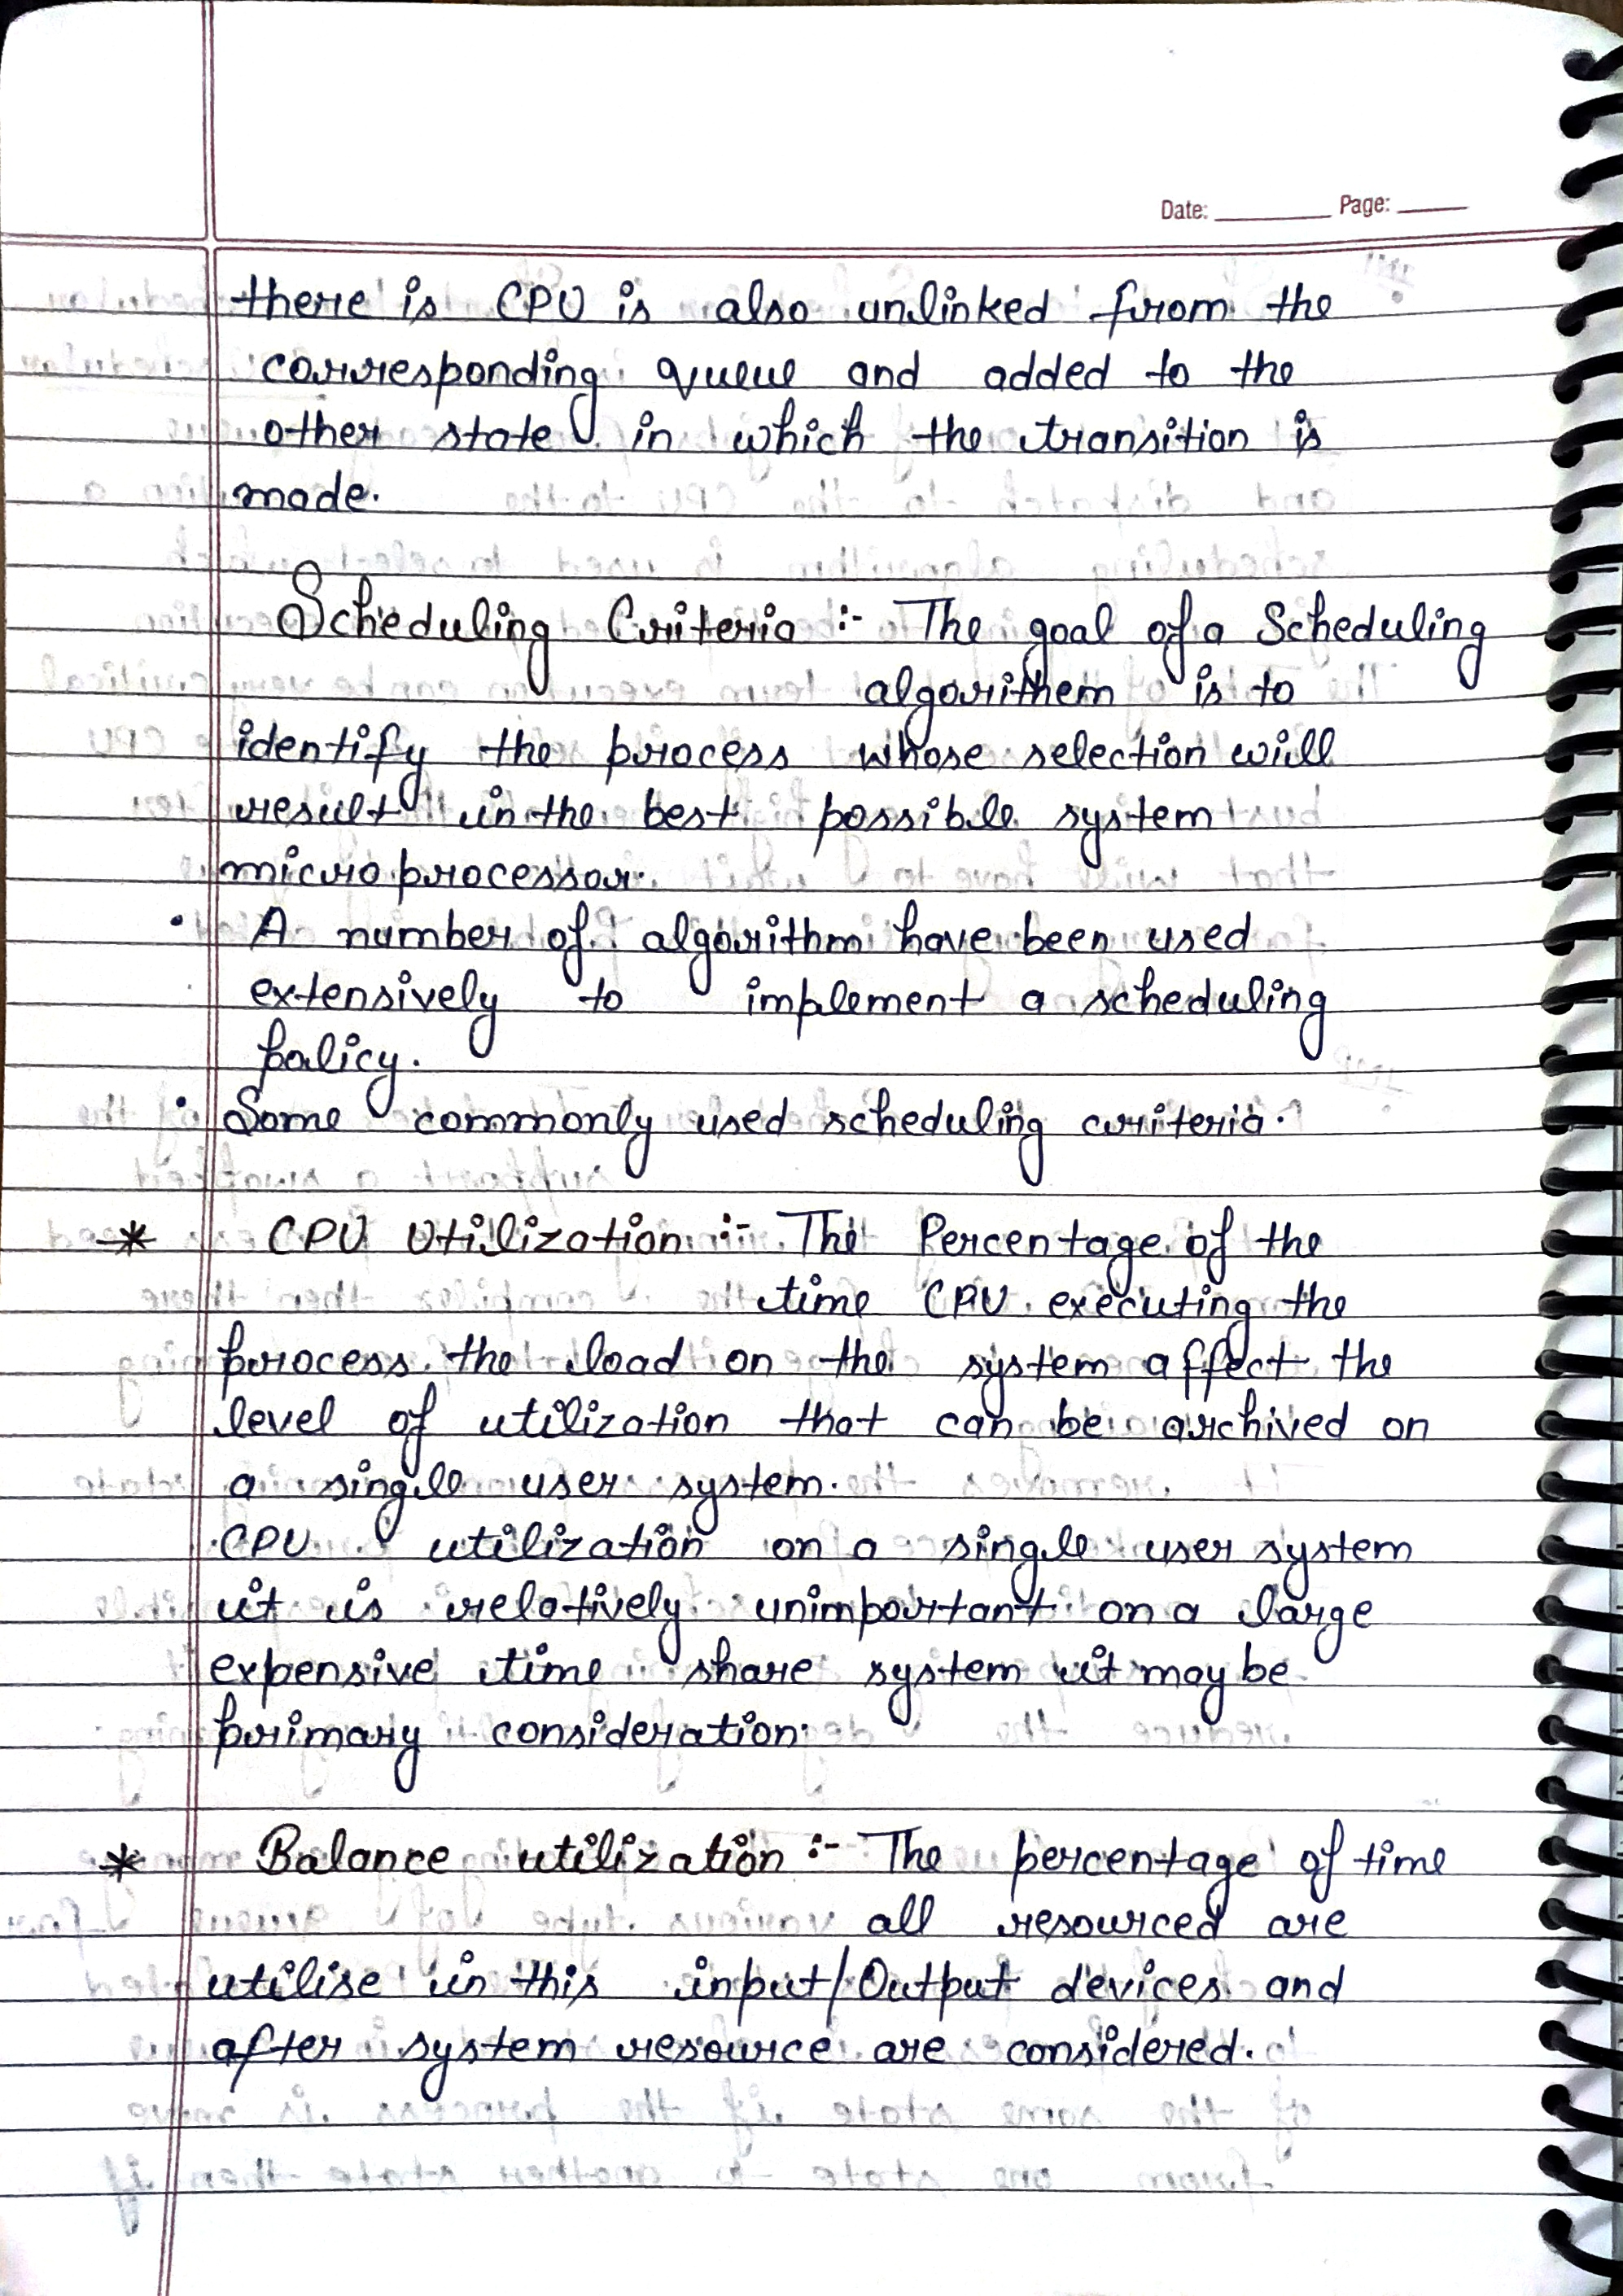 Date: ________ Page: _____
there is CPU is also unlinked from the
corresponding queue and added to the
other state in which the transition is
made.
Scheduling Criteria :- The goal of a Scheduling
algorithem is to
identify the process whose selection will
result in the best possible system
micro processor.
• A number of algorithm have been used
extensively to implement a scheduling
policy.
• Some commonly used scheduling criteria.
* CPU Utilization :- The Percentage of the
time CPU executing the
process. the load on the system affect the
level of utilization that can be archived on
a single user system.
CPU utilization on a single user system
it is relatively unimportant on a large
expensive time share system it may be
primary consideration.
* Balance utilization :- The percentage of time
all resourced are
utilise in this input/Output devices and
after system resource are considered.